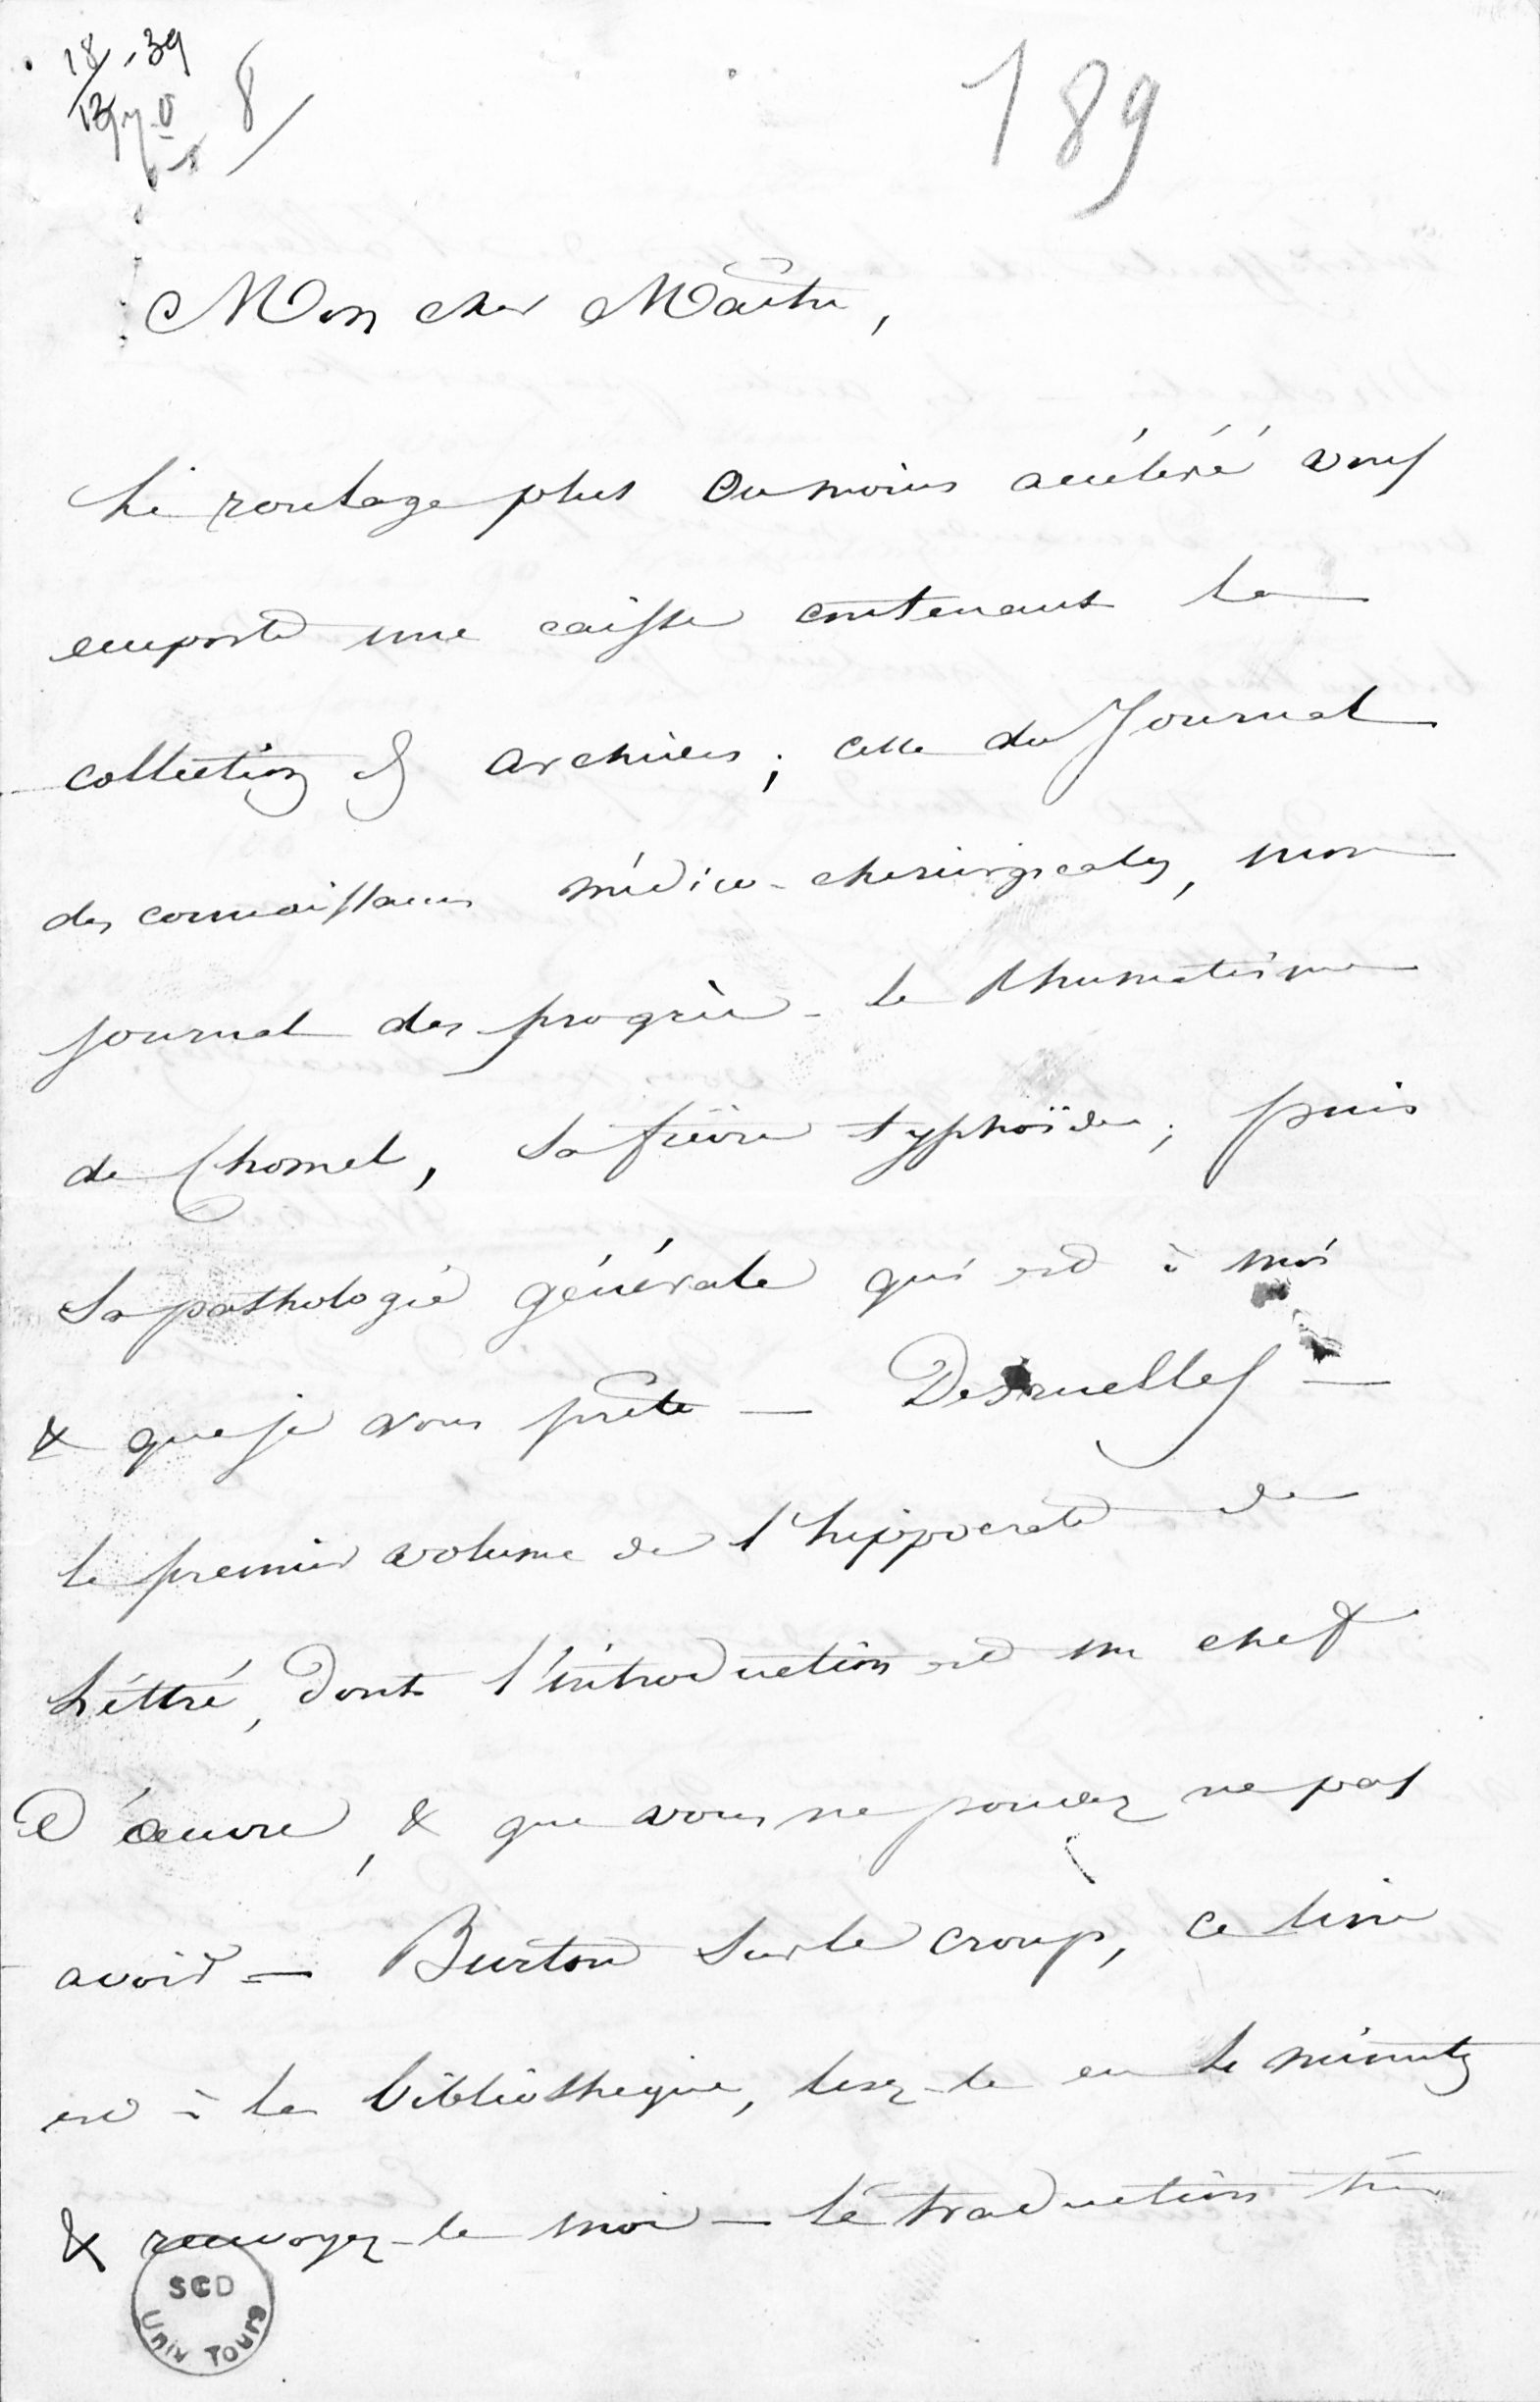 18 - 39
8/
189
Mon cher Maître,
Le roulage plus ou moins accéléré vous
emporte une caisse contenant la
collection des archives ; celle du Journal
des connaissances médico-chirurgicales, mon
journal des progrès - le rhumatisme
de Chomel, sa fièvre typhoïde ; puis
sa pathologie générale qui est à moi
& que je vous prête — Desruelles —
le premier volume de l'hippocrate de
Littré, dont l'introduction est un chef
d'œuvre, & que vous ne pouvez ne pas
avoir — Burton sur le croup, ce livre
est à la bibliothèque, lisez-le en
& renvoyez-le moi — la traduction
SCD
Univ Tours